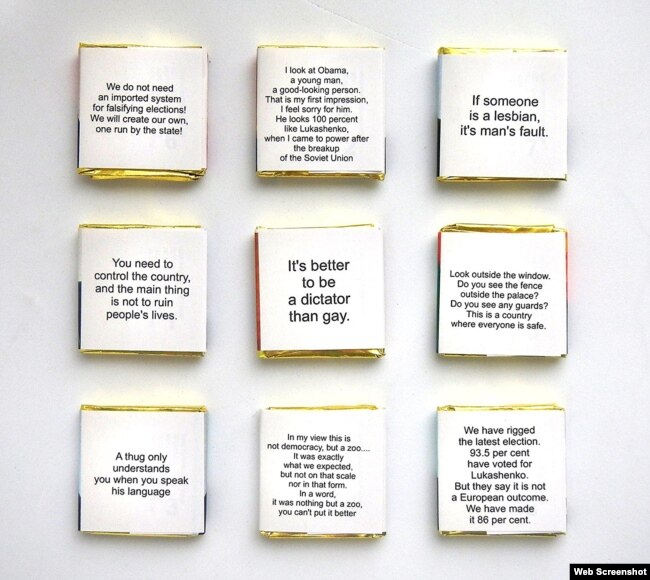 We do not need
an imported system
for falsifying elections!
We will create our own,
one run by the state!
I look at Obama,
a young man,
a good-looking person.
That is my first impression,
I feel sorry for him.
He looks 100 percent
like Lukashenko,
when I came to power after
the breakup
of the Soviet Union
If someone
is a lesbian,
it's man's fault.
You need to
control the country,
and the main thing
is not to ruin
people's lives.
It's better
to be
a dictator
than gay.
Look outside the window.
Do you see the fence
outside the palace?
Do you see any guards?
This is a country
where everyone is safe.
A thug only
understands
you when you speak
his language
In my view this is
not democracy, but a zoo....
It was exactly
what we expected,
but not on that scale
nor in that form.
In a word,
it was nothing but a zoo,
you can't put it better
We have rigged
the latest election.
93.5 per cent
have voted for
Lukashenko.
But they say it is not
a European outcome.
We have made
it 86 per cent.
Web Screenshot